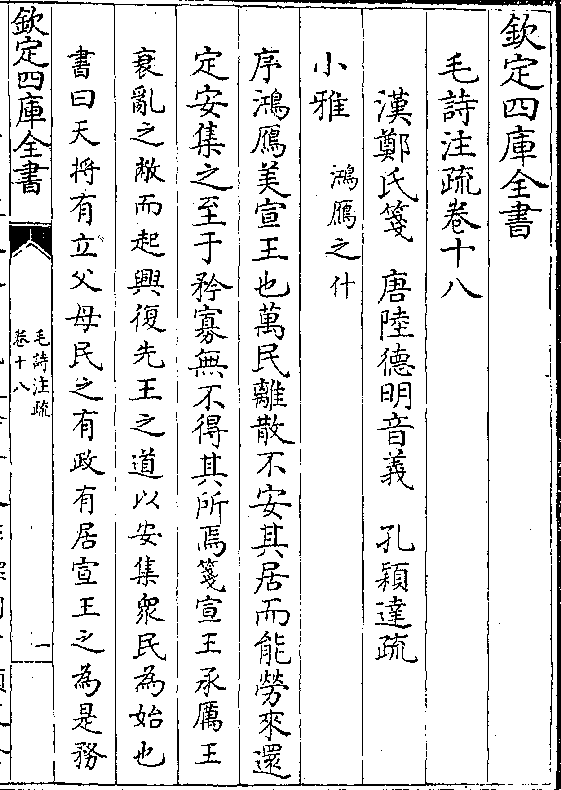 欽定四庫全書
毛詩注疏卷十八
漢鄭氏箋　唐陸德明音義　孔穎達疏
小雅　鴻鴈之什
序鴻鴈美宣王也萬民離散不安其居而能勞來還
定安集之至于矜寡無不得其所焉箋宣王承厲王
衰亂之敝而起興復先王之道以安集衆民為始也
書曰天將有立父母民之有政有居宣王之為是務
欽定四庫全書
毛詩注疏
卷十八
一